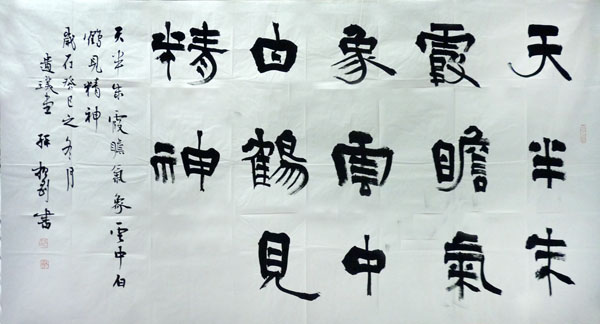 天半朱
霞瞻氣
象雲中
白鶴見
精神
天半朱霞瞻氣象雲中白
鶴見精神
歲在癸巳之冬月
書